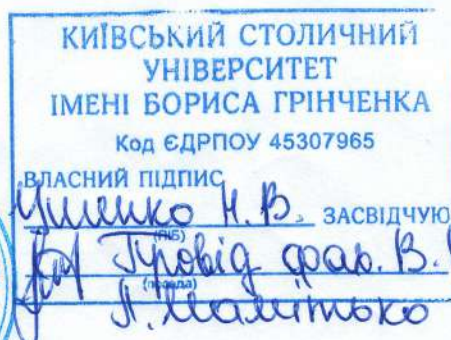 КИЇВСЬКИЙ СТОЛИЧНИЙ
УНІВЕРСИТЕТ
ІМЕНІ БОРИСА ГРІНЧЕНКА
Код ЄДРПОУ 45307965
ВЛАСНИЙ ПІДПИС
Н.В. ЗАСВІДЧУЮ
(ПІБ)
Провід фах. В.
(посада)